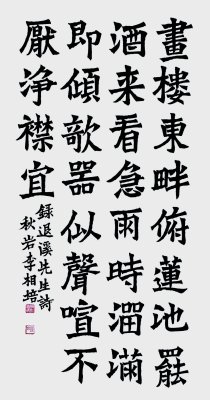 畫樓東畔俯蓮池罷
酒来看急雨時溜滿
即傾欹器似聲喧不
厭净襟宜
錄退溪先生詩
秋岩李相培